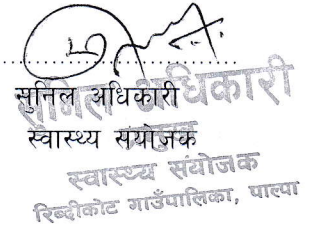 सुनिल अधिकारी
स्वास्थ्य संयोजक
सुनिल अधिकारी
स्वास्थ्य संयोजक
रिब्दीकोट गाउँपालिका, पाल्पा